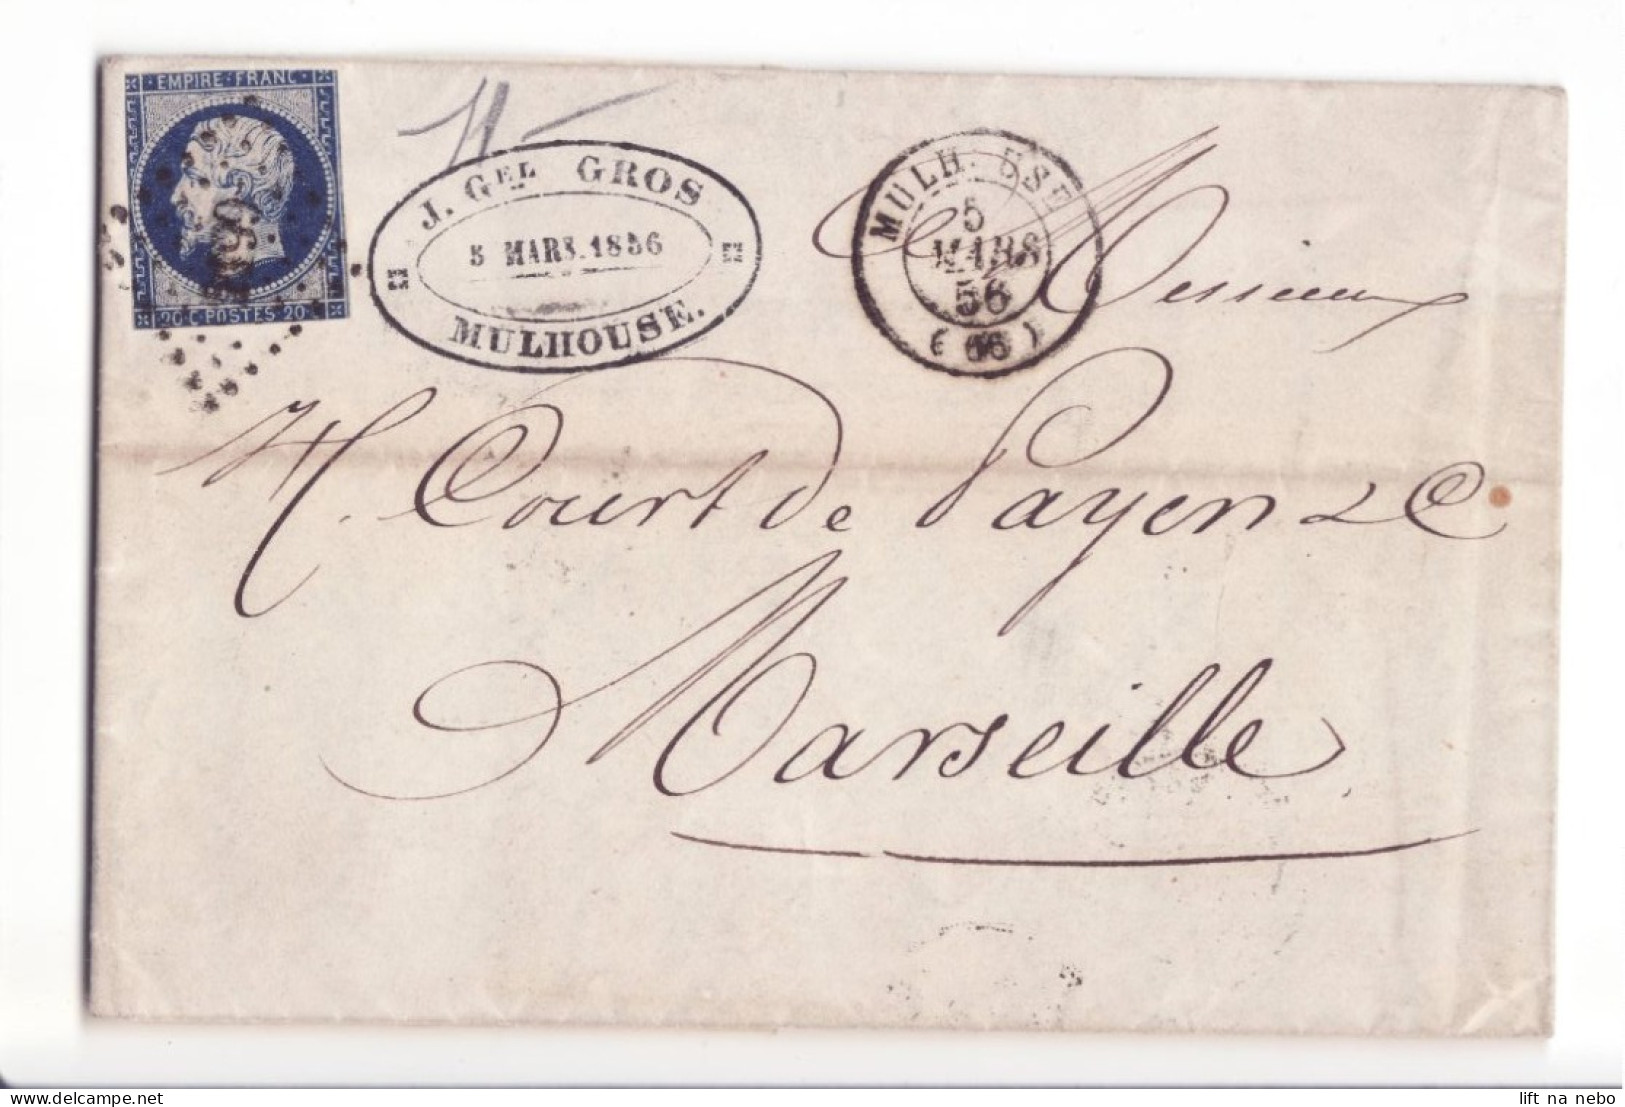 EMPIRE FRANC
20 C. POSTES 20
J. GEL GROS
5 MARS. 1856
MULHOUSE.
MULH USE
5
MARS
56
(66)
Messieurs
H. Court de Payen & C
Marseille
lift na nebo